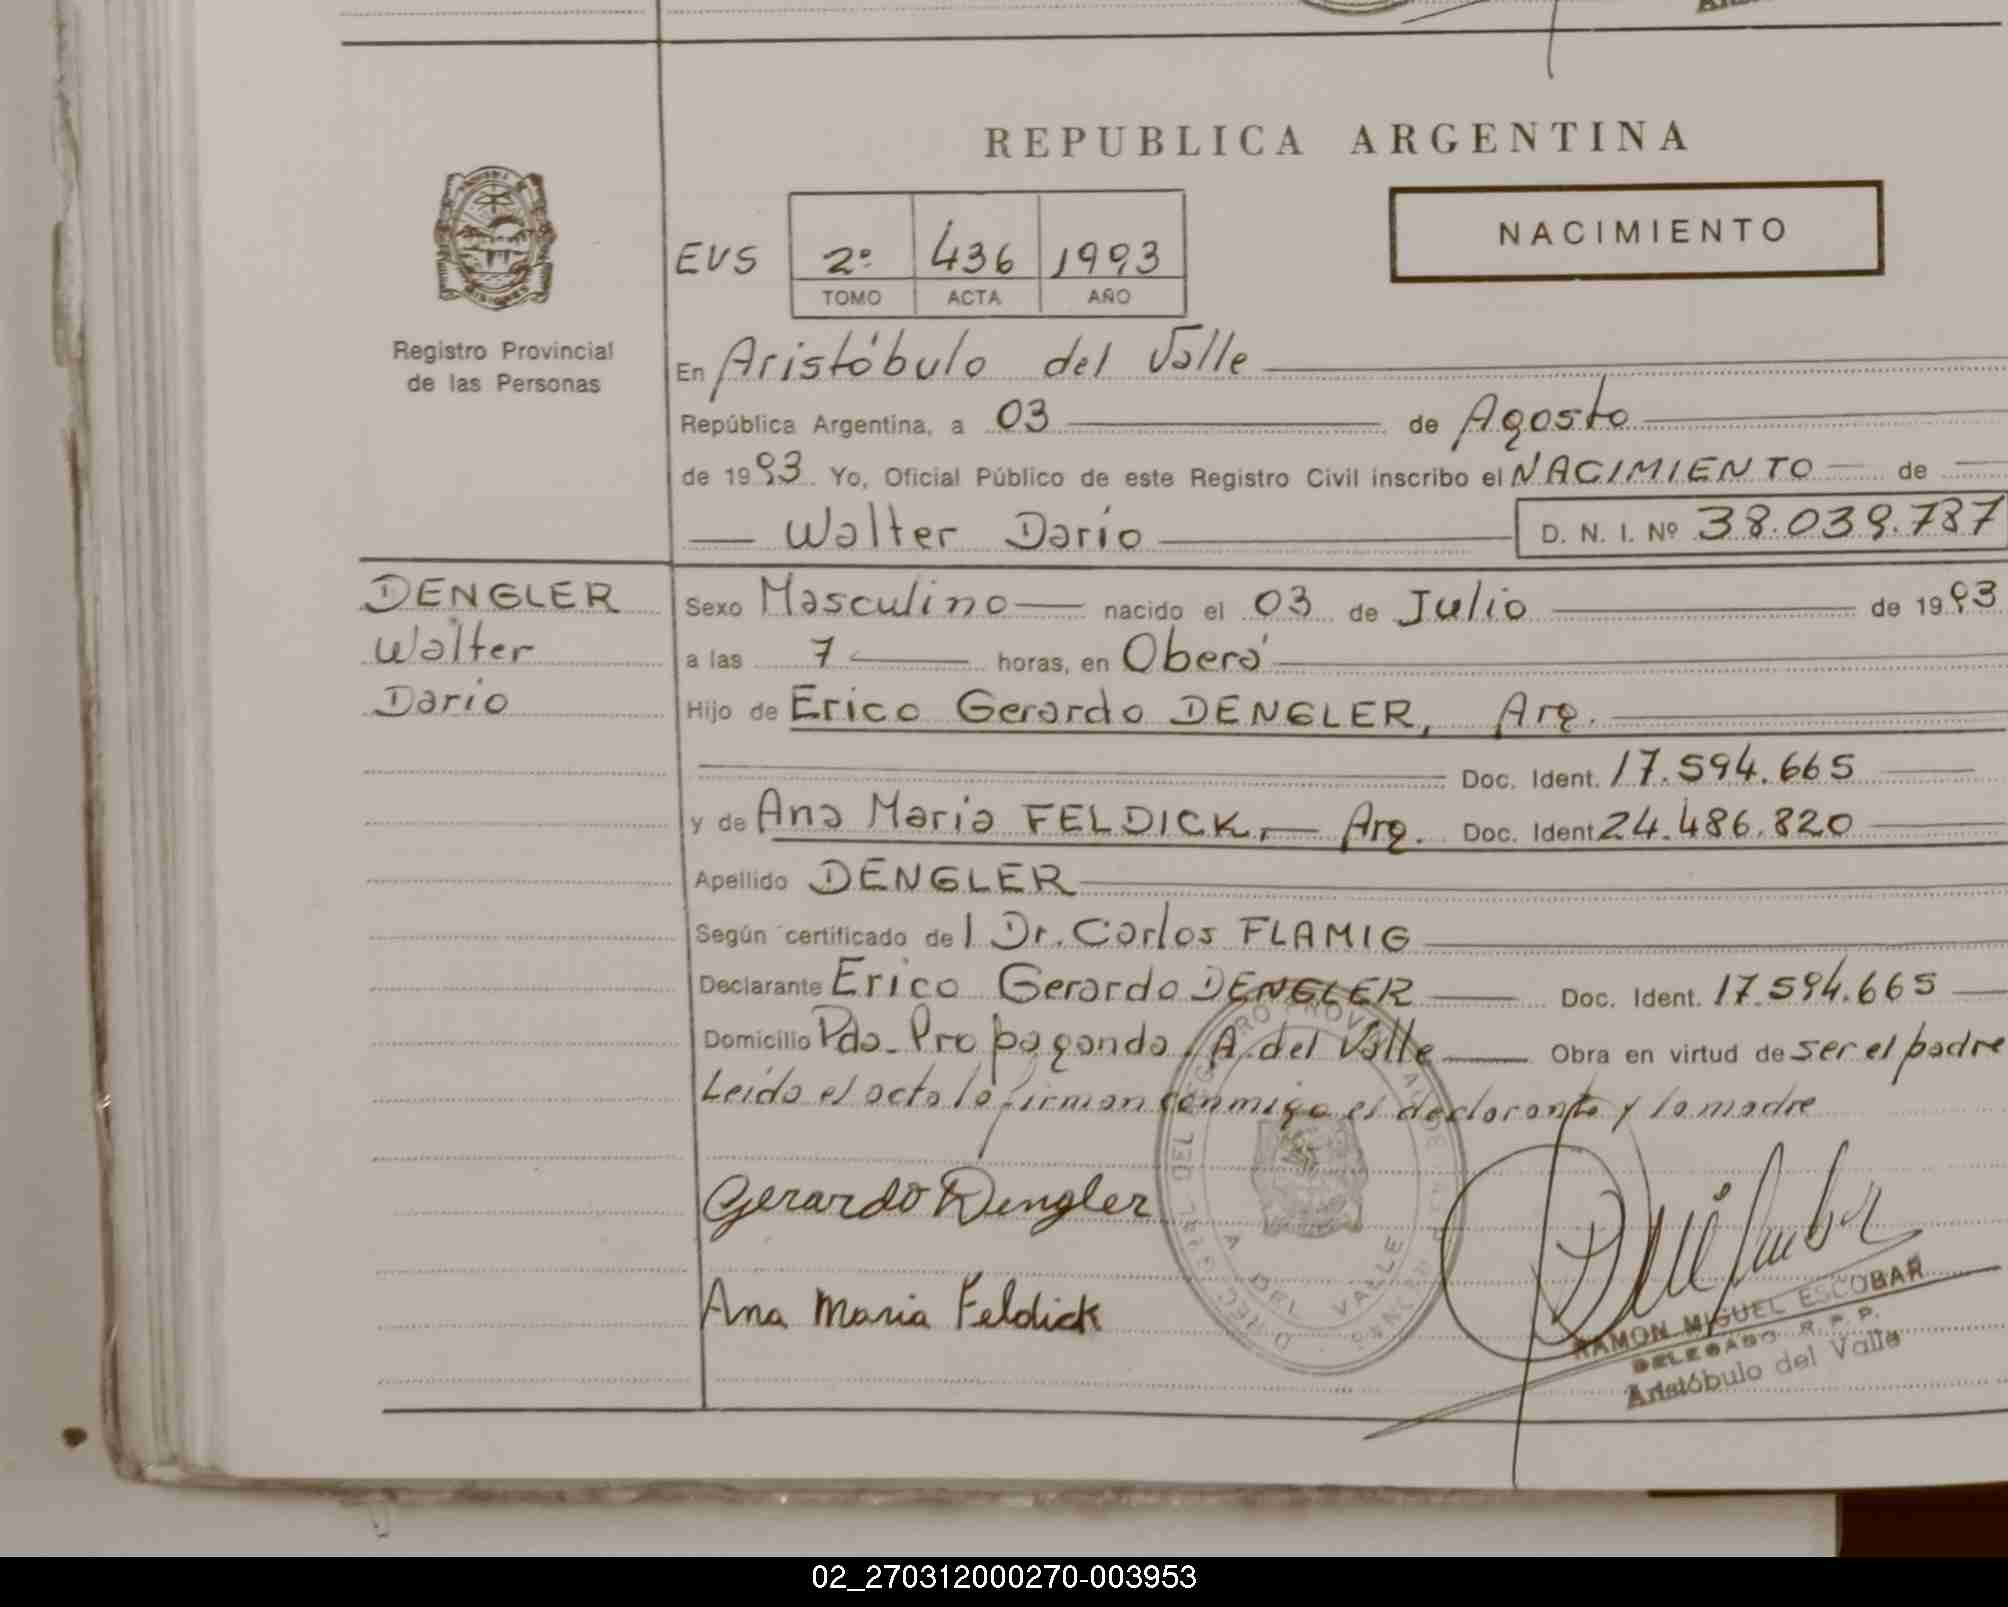 REPUBLICA ARGENTINA
NACIMIENTO
EVS 2º 436 1993
TOMO ACTA AÑO
Registro Provincial
de las Personas
En Aristóbulo del Valle
República Argentina, a 03 de Agosto
de 1993 Yo, Oficial Público de este Registro Civil inscribo el NACIMIENTO de
Walter Dario D. N. I. Nº 38.039.787
DENGLER
Walter
Dario
Sexo Masculino nacido el 03 de Julio de 1993
a las 7 horas, en Oberá
Hijo de Erico Gerardo DENGLER, Arg.
Doc. Ident. 17.594.665
y de Ana Maria FELDICK, Arg. Doc. Ident 24.486.820
Apellido DENGLER
Según certificado de l Dr. Carlos FLAMIG
Declarante Erico Gerardo DENGLER Doc. Ident. 17.594.665
Domicilio Pda. Propaganda, A. del Valle Obra en virtud de ser el padre
Leída el acta la firman conmigo el declarante y la madre
Gerardo Dengler
Ana Maria Feldick
A. DEL VALLE
RAMON MIGUEL ESCOBAR
DELEGADO R. P. P.
Aristóbulo del Valle
02_270312000270-003953